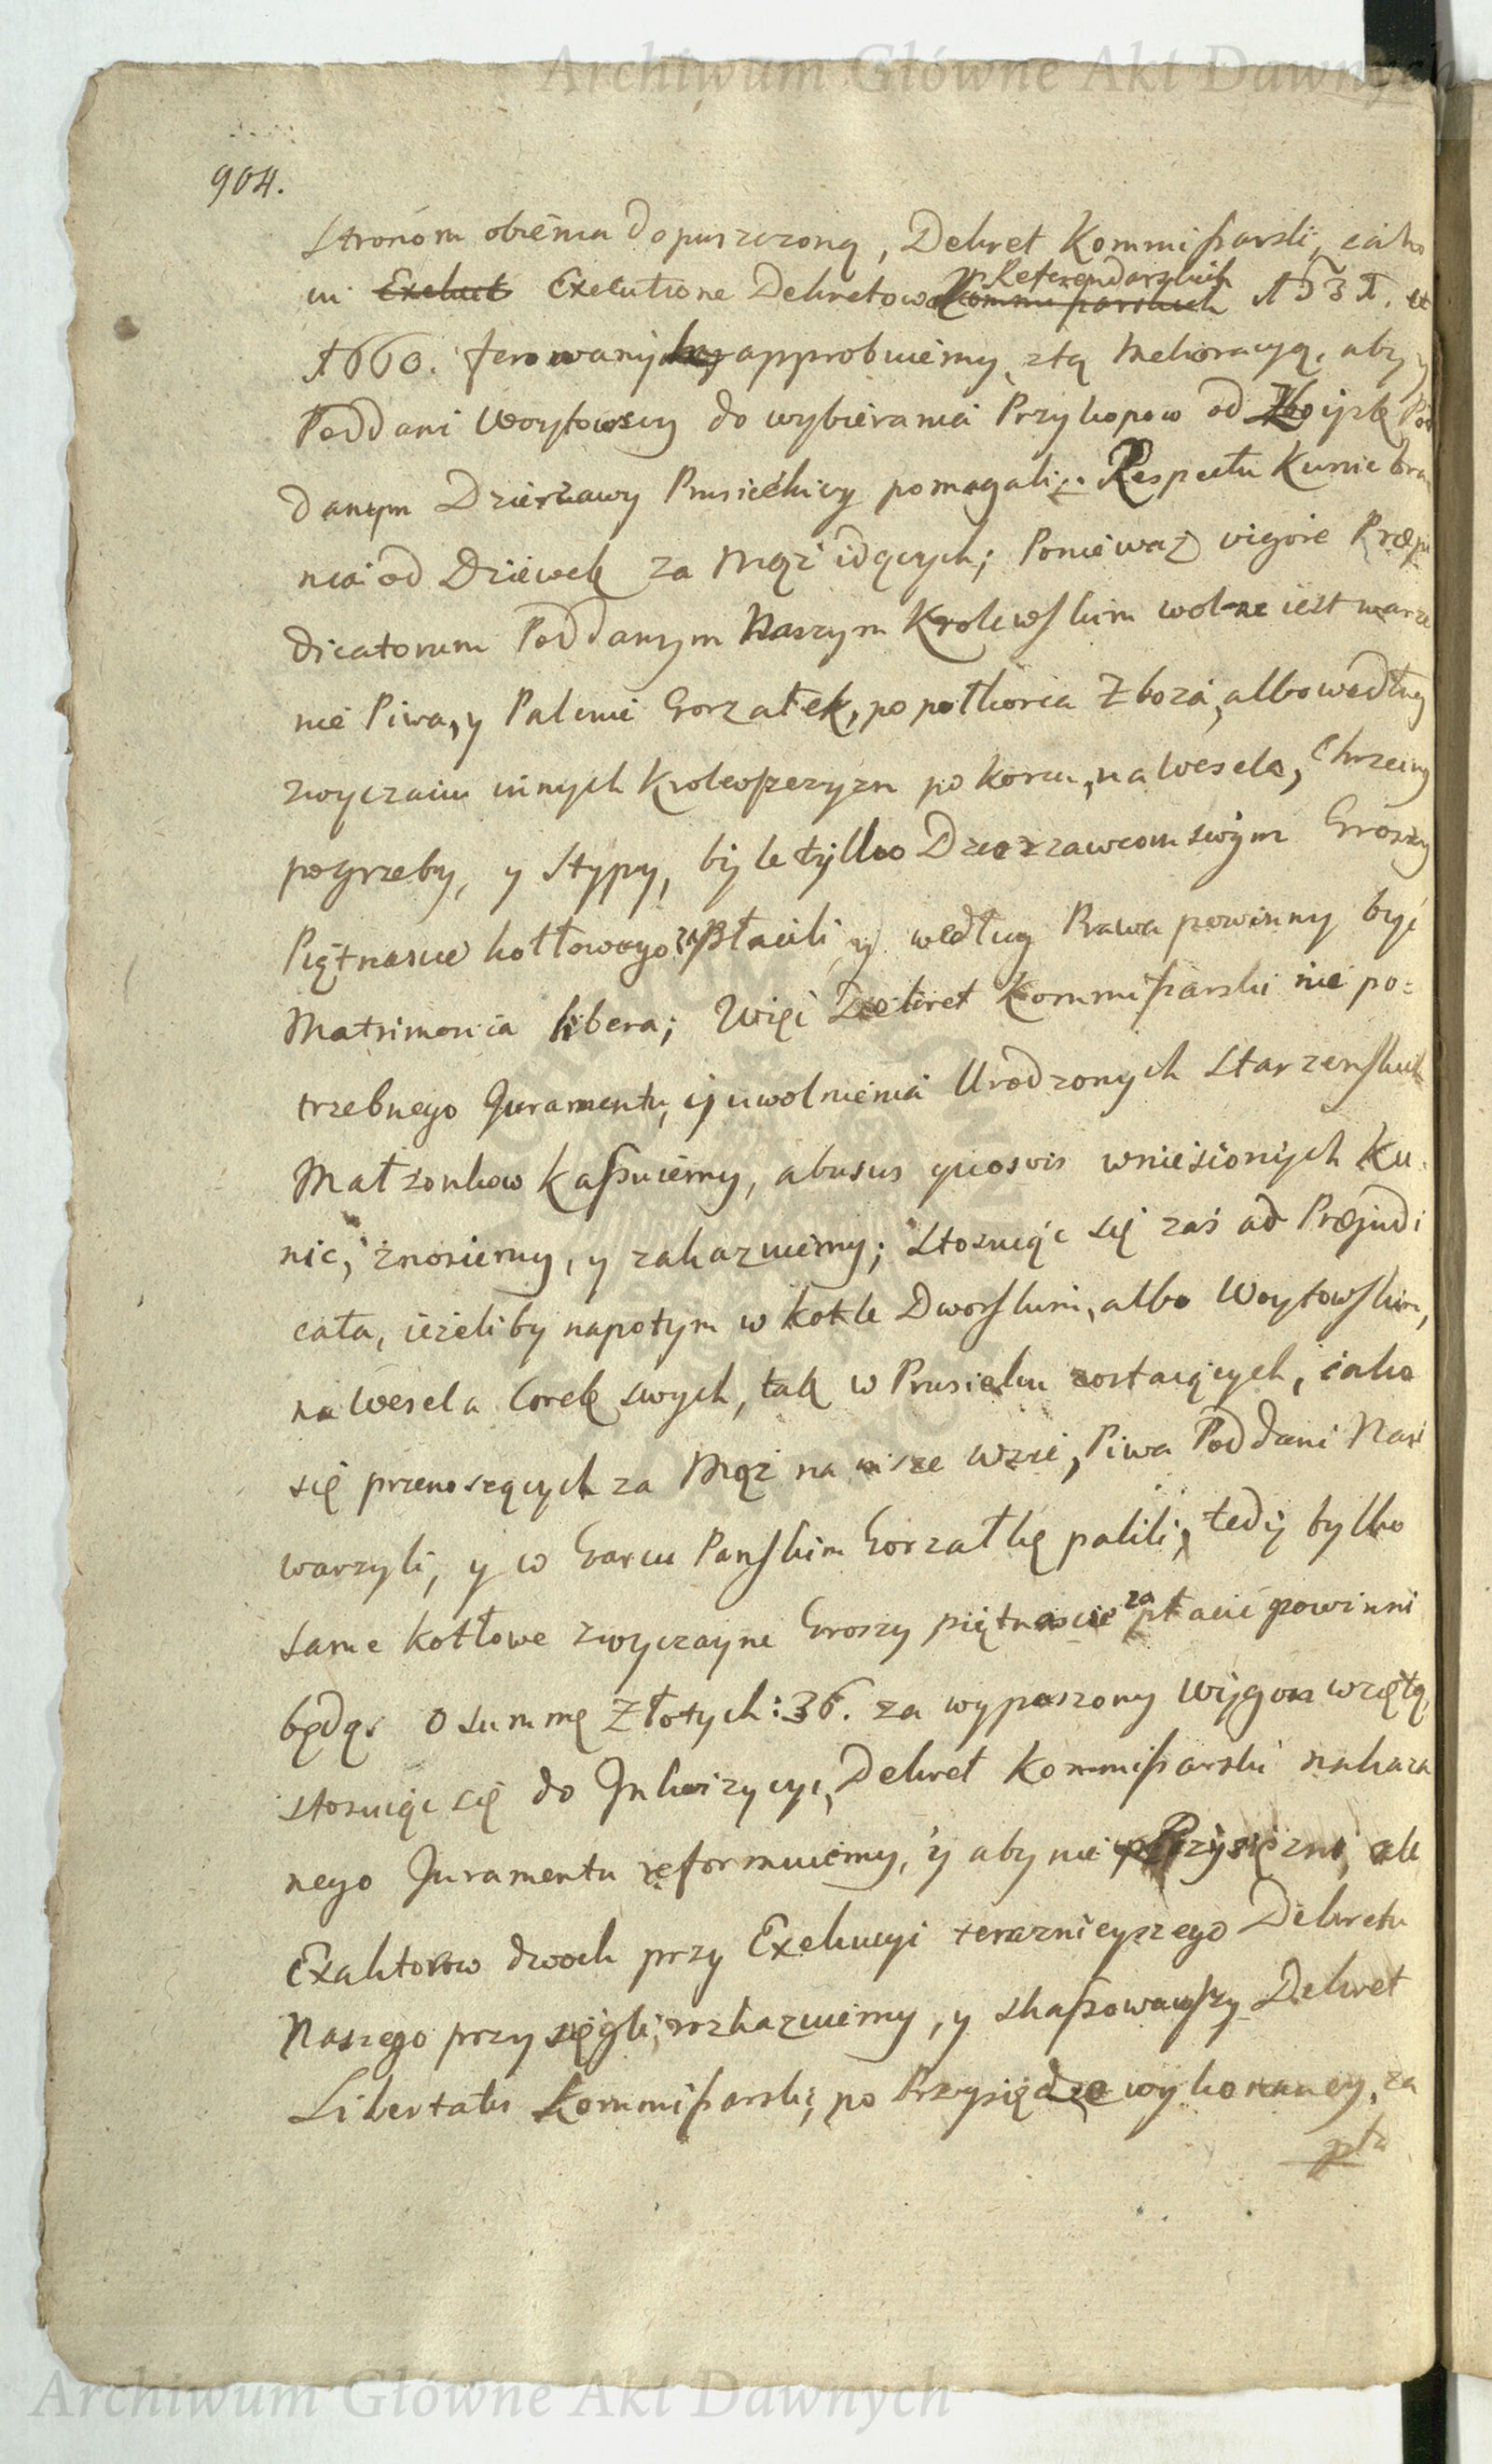 Archiwum Główne Akt Dawnych
904.
Stronom obiema dopuszczoną, Dekret Kommissarski, iako
in Exekut Executione Dekretow Kommissarskich Referendarskich 1531. et
1660. ferowany approbuiemy, z tą Melioracyą, aby y
Poddani Woytowscy do wybierania Przykopow od Pod
danym Dzierżawy Prusieckiey pomagali. Respectu Kunic bra
nia od Dziewek za Mąż idących; Ponieważ vigore Præju
dicatorum Poddanym Naszym Krolewskim wolne iest warze
nie Piwa, y Palenie Gorzałek, po połkorca Zboża, albo według
zwyczaiu innych Krolewszczyzn po korcu, na Wesela, Chrzciny
pogrzeby, y Stypy, byle tylko Dzierzawcom swym Groszy
Piętnascie kotłowego zapłacili y według Prawa powinny być
Matrimonia libera; Więc Dekret Kommissarski nie po=
trzebnego Juramentu, y uwolnienia Urodzonych Starzenskich
Małżonkow kassuiemy, abusus quosvis wniesionych Ku=
nic, znosiemy, y zakazuiemy; Stosuiąc się zaś ad Præjudi
cata, ieżeliby napotym w kotle Dworskim, albo Woytowskim,
na Wesela Corek swych, tak w Prusieku zostaiących, iako
się przenoszących za Mąż na insze Wsie, Piwa Poddani Nasi
warzyli, y w Garcu Panskim Gorzałkę palili, tedy tylko
same kotłowe zwyczayne Groszy piętnascie zapłacić powinni
będą. O summę Złotych: 36. za wypaszony Wygon wziętą,
stosuiąc się do Inkwizycyi, Dekret Kommissarski nakaza
nego Juramentu reformuiemy, y aby nie Przysiężni, ale
Exaktorow dwoch przy Exekucyi teraznieyszego Dekretu
Naszego przysięgli, rozkazuiemy, y skassowawszy Dekret
Libertatis Kommissarski, po Przysiędze wykonaney, za
pła
Archiwum Główne Akt Dawnych